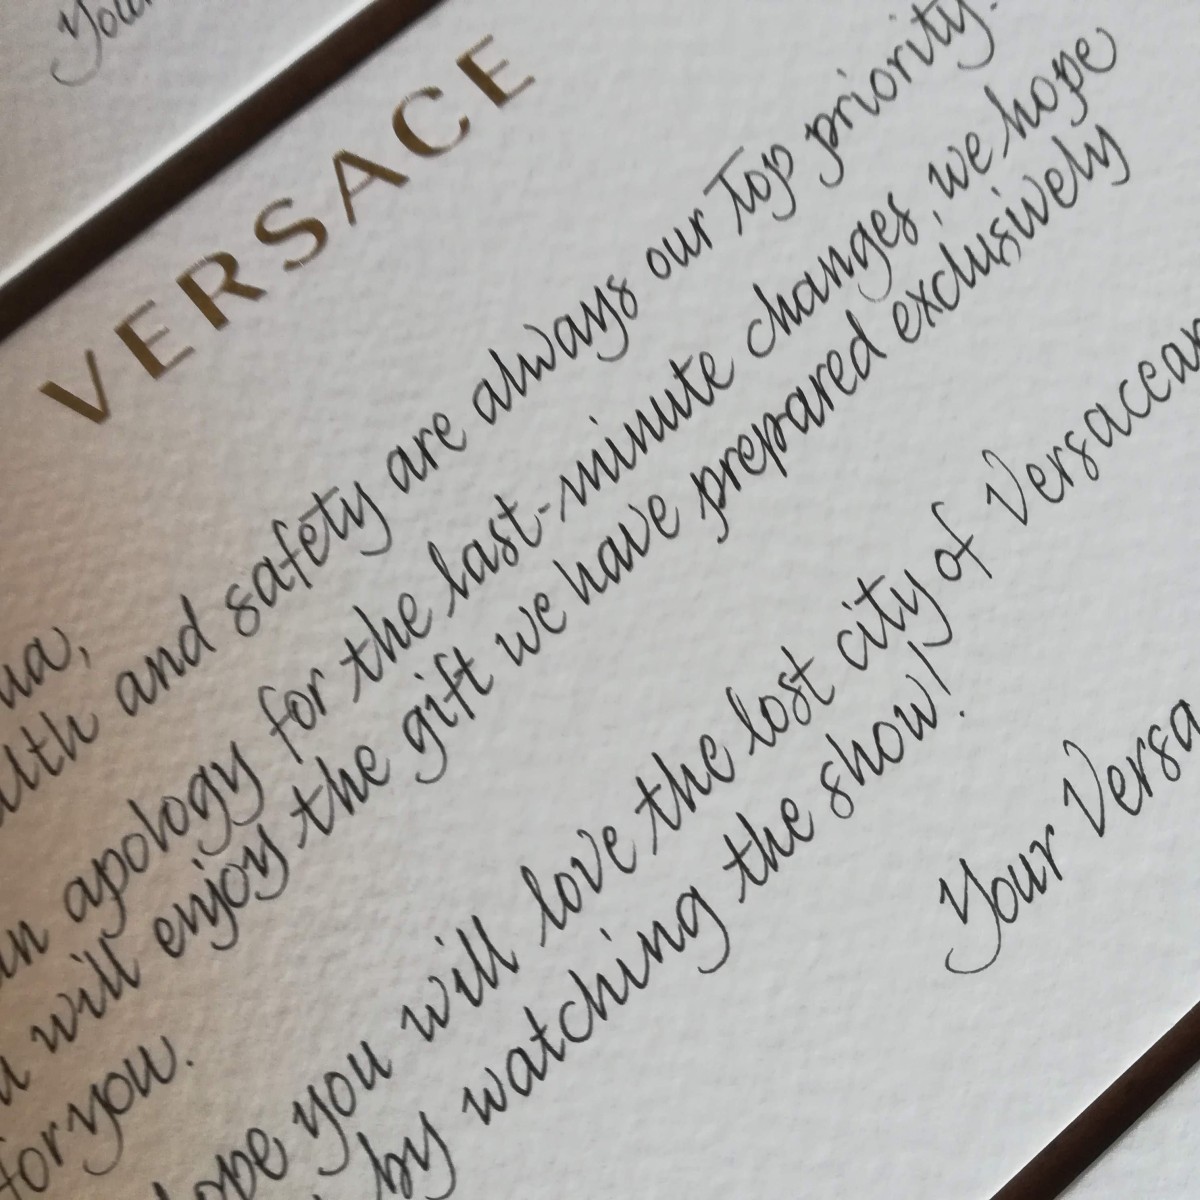 VERSACE
and safety are always our Top priority.
apology for the last-minute changes, we hope
will enjoy the gift we have prepared exclusively
for you.
you will love the lost city of
by watching the show!
Your